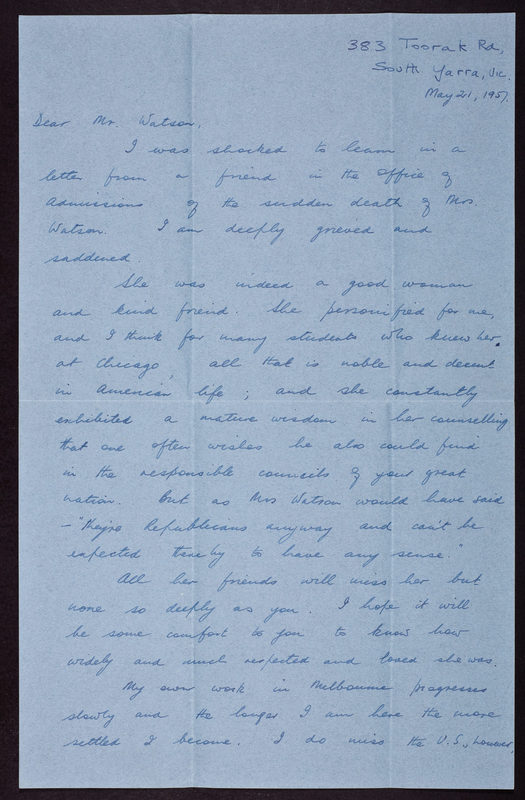 383 Toorak Rd,
South Yarra, Vic.
May 21, 1957.
Dear Mr. Watson,
I was shocked to learn in a
letter from a friend in the Office of
Admissions of the sudden death of Mrs.
Watson. I am deeply grieved and
saddened.
She was indeed a good woman
and kind friend. She personified for me,
and I think for many students who knew her
at Chicago, all that is noble and decent
in American life; and she constantly
exhibited a mature wisdom in her counselling
that one often wishes he also could find
in the responsible councils of your great
nation. But as Mrs Watson would have said
- "They're Republicans anyway and can't be
expected thereby to have any sense."
All her friends will miss her but
none so deeply as you. I hope it will
be some comfort to you to know how
widely and much respected and loved she was.
My own work in Melbourne progresses
slowly and the longer I am here the more
settled I become. I do miss the U.S., however,